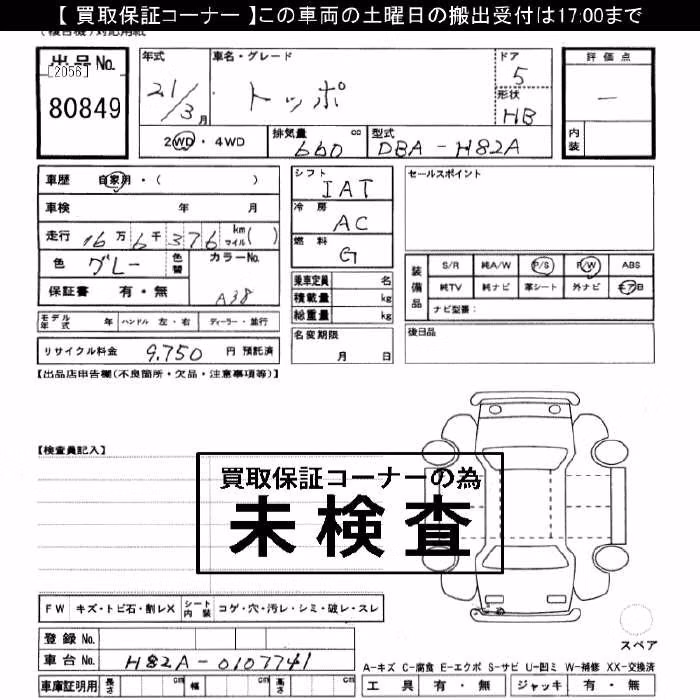 【 買取保証コーナー 】この車両の土曜日の搬出受付は17:00まで
出品No.
[2056]
80849
年式
21/3月
車名・グレード
トッポ
ドア
5
形状
HB
評価点
—
内装
2WD・4WD
排気量 cc
660
型式
DBA-H82A
車歴 自家用・( )
車検 年 月
走行 16万6千376 km マイル( )
色 グレー 色替
カラーNo.
A38
保証書 有・無
シフト
IAT
冷房
AC
燃料
G
乗車定員 名
積載量 kg
総重量 kg
セールスポイント
装備品
S/R 純A/W P/S P/W ABS
純TV 純ナビ 革シート 外ナビ エアB
ナビ型番:
モデル年式 年 ハンドル 左・右 ディーラー・並行
名変期限
月 日
後日品
リサイクル料金 9,750 円 預託済
【出品店申告欄(不良箇所・欠品・注意事項等)】
【検査員記入】
買取保証コーナーの為
未検査
FW キズ・トビ石・割レX シート内装 コゲ・穴・汚レ・シミ・破レ・スレ
登録 No.
車台 No. H82A-0107741
車庫証明用 長さ cm 幅 cm 高さ cm
スペア
A-キズ C-腐食 E-エクボ S-サビ U-凹ミ W-補修 XX-交換済
工具 有・無 ジャッキ 有・無